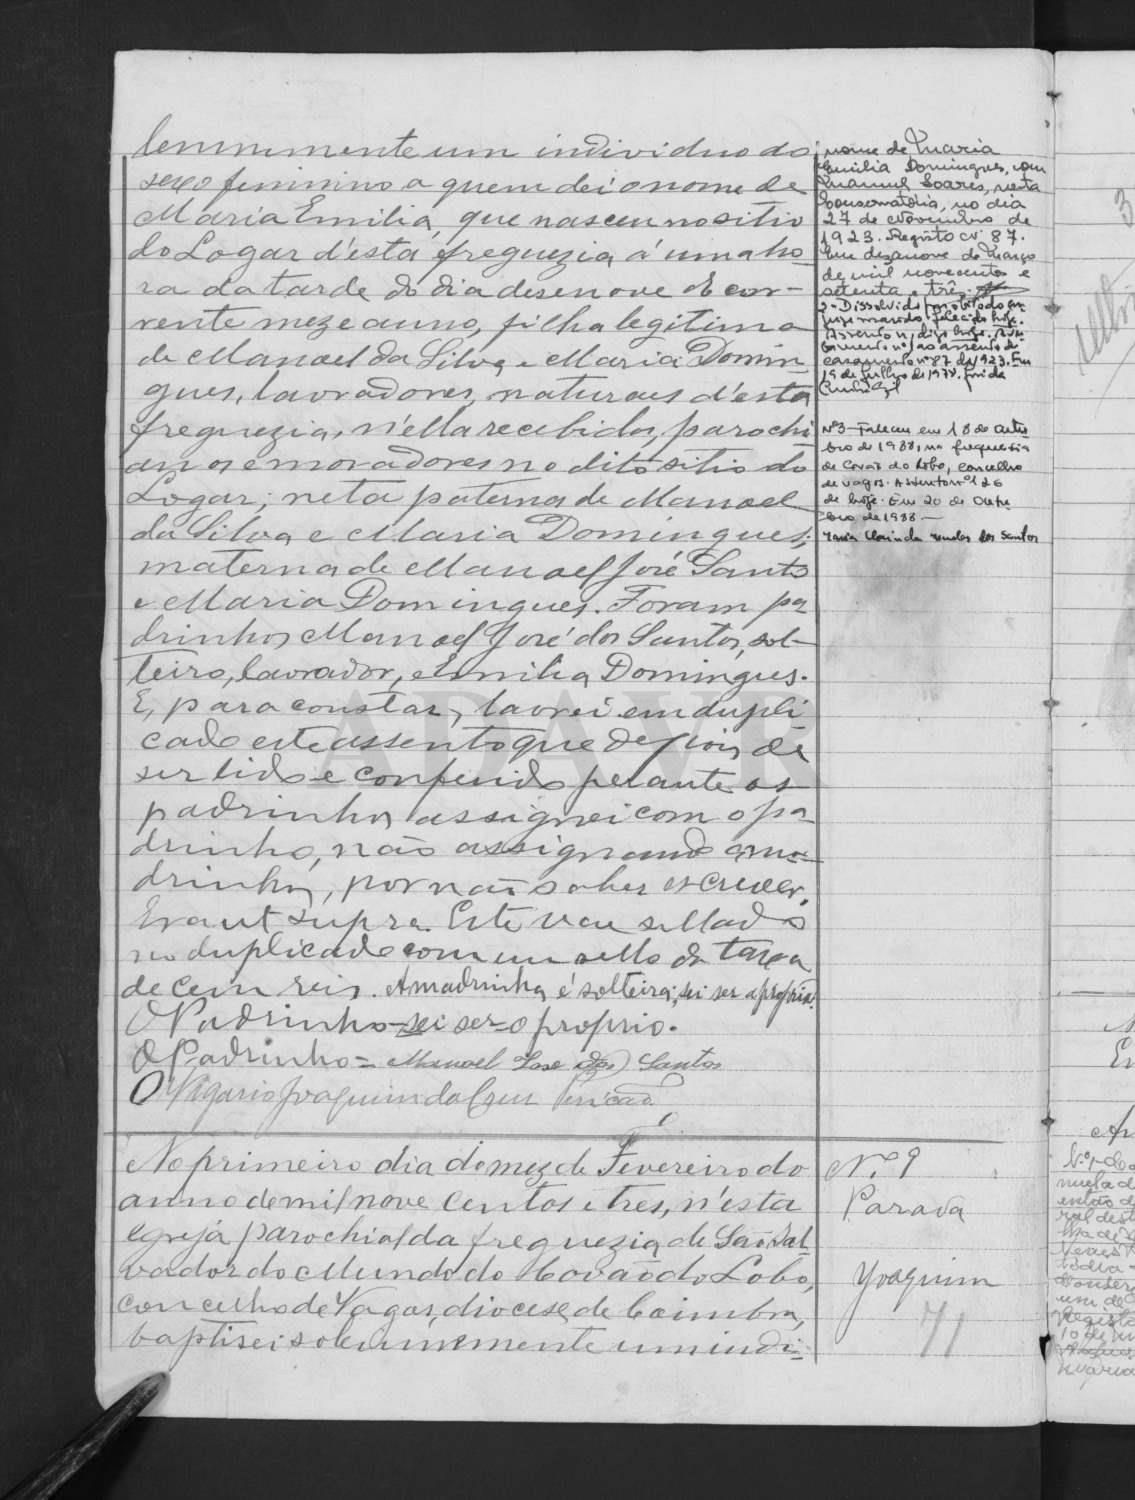 lemnemente um individuo do
sexo feminino a quem dei o nome de
Maria Emilia, que nasceu no sitio
do Logar d'esta freguezia á uma ho-
ra da tarde do dia desenove do cor-
rente mez e anno, filha legitima
de Manoel da Silva e Maria Domin-
gues, lavradores, naturaes d'esta
freguezia, n'ella recebidos, parochi-
anos e moradores no dito sitio do
Logar; neta paterna de Manoel
da Silva e Maria Domingues;
materna de Manoel José Santo
e Maria Domingues. Foram pa-
drinhos Manoel José dos Santos, sol-
teiro, lavrador, e Emilia Domingues.
E, para constar, lavrei em dupli-
cado este assento que depois de
ser lido e conferido perante os
padrinhos assignei com o pa-
drinho, não assignando a ma-
drinha, por não saber escrever.
Era ut supra. Este vae sellado
no duplicado com um sello da taxa
de cem reis. A madrinha é solteira; sei ser a propria.
O Padrinho sei ser o proprio.
O Padrinho = Manoel José dos Santos
O Vigario Joaquim da Cruz
No primeiro dia do mez de Fevereiro do
anno de mil nove centos e tres, n'esta
egreja parochial da freguezia de São Sal-
vador do Mundo do Covão do Lobo,
concelho de Vagos, diocese de Coimbra,
baptisei solemnemente um indi-
nome de Maria
Emilia Domingues, com
Manuel Soares, nesta
Conservatória, no dia
27 de Novembro de
1923. Registo Nº 87.
Em dezanove de Março
de mil novecentos e
setenta e três.
2 - Dissolvido por óbito do con-
juge marido falecido hoje.
Assento nº, digo hoje.
casamento nº 87 de 1923. Em
19 de Julho de 1978.
Nº3 - Faleceu em 18 de Outu-
bro de 1988, na freguesia
de Covão do Lobo, concelho
de Vagos. Assento nº 126
de hoje. Em 20 de Outu-
bro de 1988 -
Maria Clarinda dos Santos
Nº 9
Parada
Joaquim
71
ADAVR